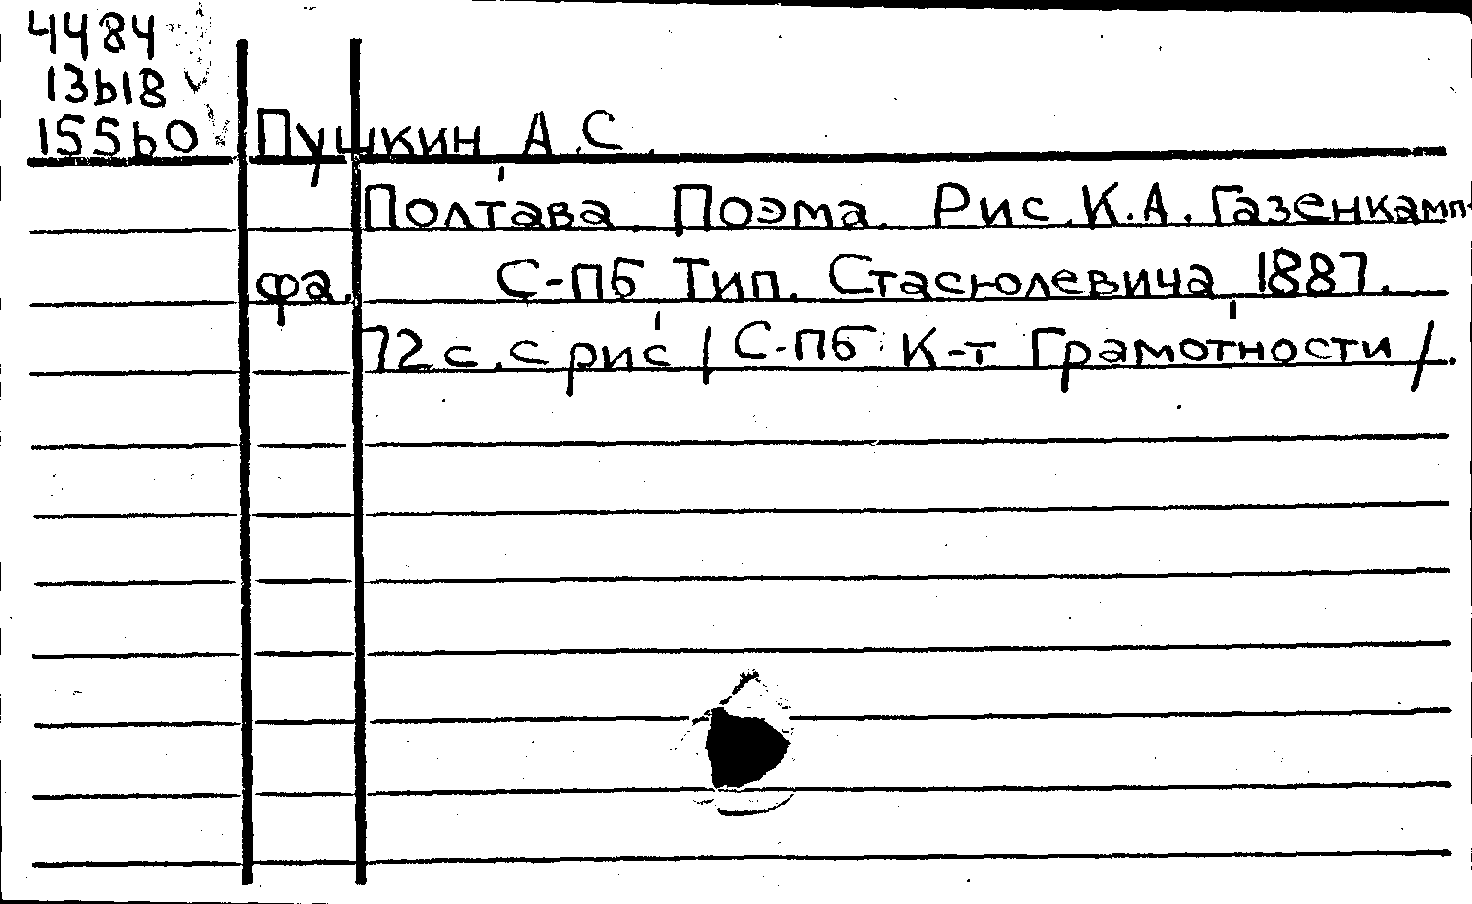 4484
13618
15560 Пушкин, А.С.
Полтава. Поэма. Рис. К.А. Газенкамп-
фа. С-ПБ Тип. Стасюлевича, 1887.
72 с. с рис. /С-ПБ К-т Грамотности/.